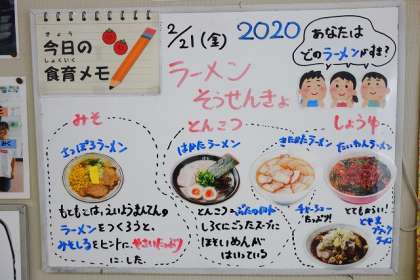 きょう
今日の
しょくいく
食育メモ
2/21(金)
2020
あなたは
どのラーメンが好き?
ラーメン
そうせんきょ
みそ
さっぽろラーメン
もともとは、えいようまんてんの
ラーメンをつくろうと、
みそしるをヒントに、やさいたっぷり
にした。
とんこつ
はかたラーメン
とんこつ
しろくにごったスープに
ほそいめんが
はいっている
きたかたラーメン
チャーシュー
たっぷり!
しょうゆ
たいわんラーメン
とてもからい!
とやま
ブラック
ラーメン